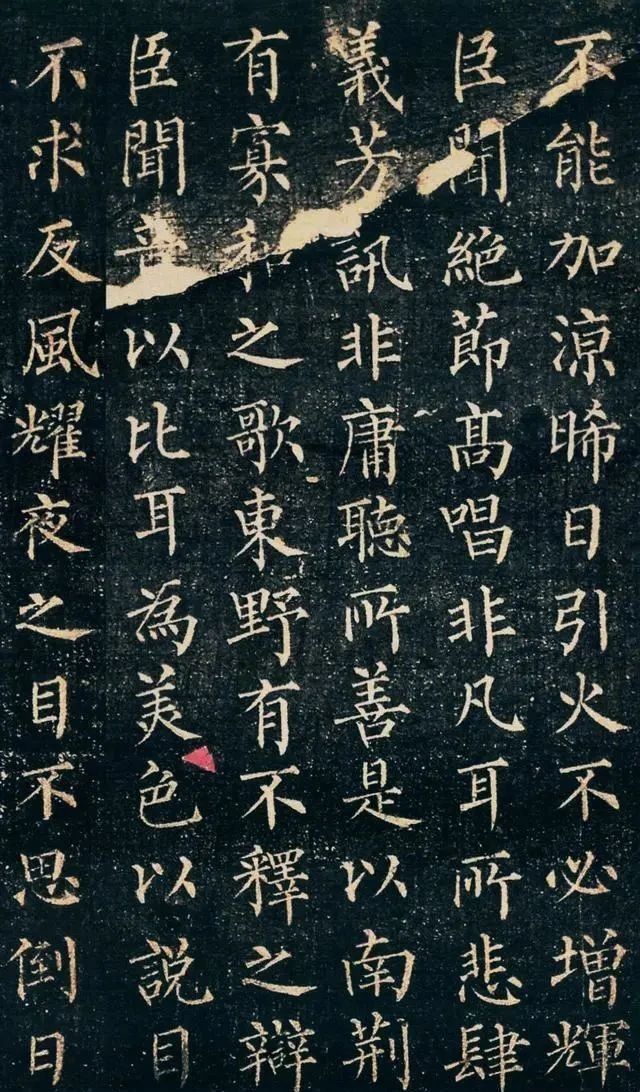 不能加涼晞日引火不必增輝
臣聞絶節髙唱非凡耳所悲肆
義芳訊非庸聽所善是以南荆
有寡和之歌東野有不釋之辯
臣聞音以比耳為美色以説目
不求反風耀夜之目不思倒日